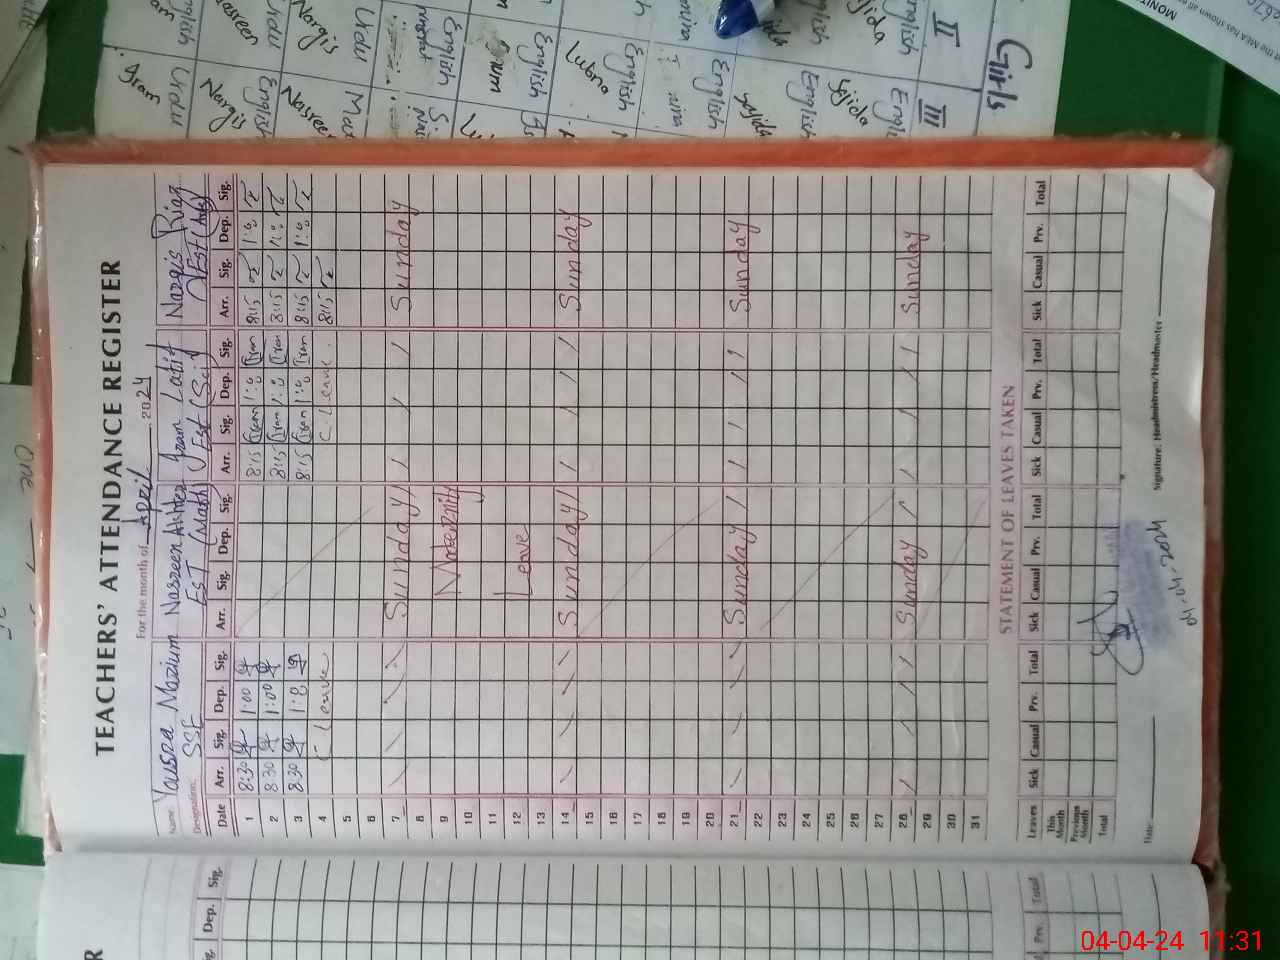 TEACHERS' ATTENDANCE REGISTER
For the month of April 2024
Name: Yousra Mazium Nasreen Akhter Iram Latif Nargis Riaz
Designation: SSE EST (Math) Est (Sci) Est (Arts)
Date Arr. Sig. Dep. Sig. Arr. Sig. Dep. Sig. Arr. Sig. Dep. Sig. Arr. Sig. Dep. Sig.
1 8:30 1:00 8:15 Iram 1:0 Iram 8:15 1:0
2 8:30 1:00 8:15 Iram 1:0 Iram 8:15 1:0
3 8:30 1:0 8:15 Iram 1:0 Iram 8:15 1:0
4 C Leave C. Leave. 8:15
5
6
7 Sunday Sunday
8
9 Maternity
10
11
12 Leave
13
14 Sunday Sunday
15
16
17
18
19
20
21 Sunday Sunday
22
23
24
25
26
27
28 Sunday Sunday
29
30
31
STATEMENT OF LEAVES TAKEN
Leaves Sick Casual Prv. Total Sick Casual Prv. Total Sick Casual Prv. Total Sick Casual Prv. Total
This Month
Previous Month
Total
04-04-2024
Date: Signature: Headmistress/Headmaster
R
Dep. Sig.
Prv. Total
Girls
II III
English Sajida English
Sajida English Sajida
English
English Lubna English
English
Urdu Nargis
Urdu Nasreen
English Nargis
Urdu Iram
MONIT
the MEA has shown all
04-04-24 11:31